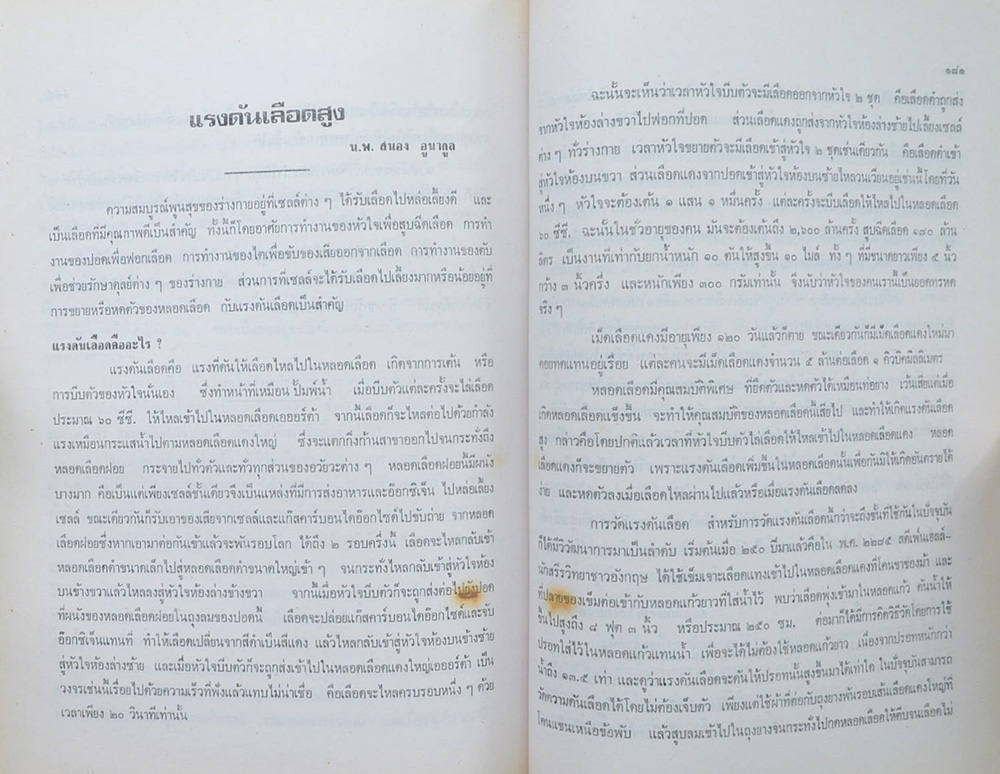 แรงดันเลือดสูง
น.พ. สนอง อูนากูล
ความสมบูรณ์พูนสุขของร่างกายอยู่ที่เซลล์ต่าง ๆ ได้รับเลือดไปหล่อเลี้ยงดี และ
เป็นเลือดที่มีคุณภาพดีเป็นสำคัญ ทั้งนี้ก็โดยอาศัยการทำงานของหัวใจเพื่อสูบฉีดเลือด การทำ
งานของปอดเพื่อฟอกเลือด การทำงานของไตเพื่อขับของเสียออกจากเลือด การทำงานของตับ
เพื่อช่วยรักษาดุลย์ต่าง ๆ ของร่างกาย ส่วนการที่เซลล์จะได้รับเลือดไปเลี้ยงมากหรือน้อยอยู่ที่
การขยายหรือหดตัวของหลอดเลือด กับแรงดันเลือดเป็นสำคัญ
แรงดันเลือดคืออะไร ?
แรงดันเลือดคือ แรงที่ดันให้เลือดไหลไปในหลอดเลือด เกิดจากการเต้น หรือ
การบีบตัวของหัวใจนั่นเอง ซึ่งทำหน้าที่เหมือน ปั๊มพ์น้ำ เมื่อบีบตัวแต่ละครั้งจะไล่เลือด
ประมาณ ๖๐ ซีซี. ให้ไหลเข้าไปในหลอดเลือดเอออร์ต้า จากนี้เลือดก็จะไหลต่อไปด้วยกำลัง
แรงเหมือนกระแสน้ำไปตามหลอดเลือดแดงใหญ่ ซึ่งจะแตกกิ่งก้านสาขาออกไปจนกระทั่งถึง
หลอดเลือดฝอย กระจายไปทั่วตัวและทั่วทุกส่วนของอวัยวะต่าง ๆ หลอดเลือดฝอยนี้มีผนัง
บางมาก คือเป็นแต่เพียงเซลล์ชั้นเดียวจึงเป็นแหล่งที่มีการส่งอาหารและอ๊อกซิเจ็น ไปหล่อเลี้ยง
เซลล์ ขณะเดียวกันก็รับเอาของเสียจากเซลล์และแก๊สคาร์บอนไดอ๊อกไซด์ไปขับถ่าย จากหลอด
เลือดฝอยซึ่งหากเอามาต่อกันเข้าแล้วจะพันรอบโลก ได้ถึง ๒ รอบครึ่งนี้ เลือดจะไหลกลับเข้า
หลอดเลือดดำขนาดเล็กไปสู่หลอดเลือดดำขนาดใหญ่เข้า ๆ จนกระทั่งไหลกลับเข้าสู่หัวใจห้อง
บนข้างขวาแล้วไหลลงสู่หัวใจห้องล่างข้างขวา จากนี้เมื่อหัวใจบีบตัวก็จะถูกส่งต่อไปยังปอด
ที่ผนังของหลอดเลือดฝอยในถุงลมของปอดนี้ เลือดจะปล่อยแก๊สคาร์บอนไดอ๊อกไซด์และจับ
อ๊อกซิเจ็นแทนที่ ทำให้เลือดเปลี่ยนจากสีดำเป็นสีแดง แล้วไหลกลับเข้าสู่หัวใจห้องบนข้างซ้าย
สู่หัวใจห้องล่างซ้าย และเมื่อหัวใจบีบตัวก็จะถูกส่งเข้าไปในหลอดเลือดแดงใหญ่เอออร์ต้า เป็น
วงจรเช่นนี้เรื่อยไปด้วยความเร็วที่ฟังแล้วแทบไม่น่าเชื่อ คือเลือดจะไหลครบรอบหนึ่ง ๆ ด้วย
เวลาเพียง ๒๐ วินาทีเท่านั้น
๑๘๑
ฉะนั้นจะเห็นว่าเวลาหัวใจบีบตัวจะมีเลือดออกจากหัวใจ ๒ ชุด คือเลือดดำถูกส่ง
จากหัวใจห้องล่างขวาไปฟอกที่ปอด ส่วนเลือดแดงถูกส่งจากหัวใจห้องล่างซ้ายไปเลี้ยงเซลล์
ต่าง ๆ ทั่วร่างกาย เวลาหัวใจขยายตัวจะมีเลือดเข้าสู่หัวใจ ๒ ชุดเช่นเดียวกัน คือเลือดดำเข้า
สู่หัวใจห้องบนขวา ส่วนเลือดแดงจากปอดเข้าสู่หัวใจห้องบนซ้ายไหลวนเวียนอยู่เช่นนี้โดยที่วัน
หนึ่ง ๆ หัวใจจะต้องเต้น ๑ แสน ๑ หมื่นครั้ง แต่ละครั้งจะบีบเลือดให้ไหลไปในหลอดเลือด
๖๐ ซีซี. ฉะนั้นในชั่วอายุของคน มันจะต้องเต้นถึง ๒,๖๐๐ ล้านครั้ง สูบฉีดเลือด ๑๘๐ ล้าน
ลิตร เป็นงานที่เท่ากับยกน้ำหนัก ๑๐ ตันให้สูงขึ้น ๑๐ ไมล์ ทั้ง ๆ ที่มีขนาดยาวเพียง ๕ นิ้ว
กว้าง ๓ นิ้วครึ่ง และหนักเพียง ๓๐๐ กรัมเท่านั้น จึงนับว่าหัวใจของคนเรานี้เป็นยอดการหด
จริง ๆ
เม็ดเลือดแดงมีอายุเพียง ๑๒๐ วันแล้วก็ตาย ขณะเดียวกันก็มีเม็ดเลือดแดงใหม่มา
คอยทดแทนอยู่เรื่อย แต่ละคนจะมีเม็ดเลือดแดงจำนวน ๕ ล้านต่อเลือด ๑ คิวบิคมิลลิเมตร
หลอดเลือดมีคุณสมบัติพิเศษ ที่ยืดตัวและหดตัวได้เหมือนท่อยาง เว้นเสียแต่เมื่อ
เกิดหลอดเลือดแข็งขึ้น จะทำให้คุณสมบัติของหลอดเลือดนี้เสียไป และทำให้เกิดแรงดันเลือด
สูง กล่าวคือโดยปกติแล้วเวลาที่หัวใจบีบตัวไล่เลือดให้ไหลเข้าไปในหลอดเลือดแดง หลอด
เลือดแดงก็จะขยายตัว เพราะแรงดันเลือดเพิ่มขึ้นในหลอดเลือดนั้นเพื่อกันมิให้เกิดอันตรายได้
ง่าย และหดตัวลงเมื่อเลือดไหลผ่านไปแล้วหรือเมื่อแรงดันเลือดลดลง
การวัดแรงดันเลือด สำหรับการวัดแรงดันเลือดนี้กว่าจะถึงขั้นที่ใช้กันในปัจจุบัน
ก็ได้มีวิวัฒนาการมาเป็นลำดับ เริ่มต้นเมื่อ ๒๕๐ ปีมาแล้วคือใน พ.ศ. ๒๒๗๕ สตีเฟ่นเฮลส์-
นักสรีรวิทยาชาวอังกฤษ ได้ใช้เข็มเจาะเลือดแทงเข้าไปในหลอดเลือดแดงที่โคนขาของม้า และ
ที่ปลายของเข็มต่อเข้ากับหลอดแก้วยาวที่ใส่น้ำไว้ พบว่าเลือดพุ่งเข้ามาในหลอดแก้ว ดันน้ำให้
ขึ้นไปสูงถึง ๘ ฟุต ๓ นิ้ว หรือประมาณ ๒๕๐ ซม. ต่อมาก็ได้มีการคิดวิธีวัดโดยการใช้
ปรอทใส่ไว้ในหลอดแก้วแทนน้ำ เพื่อจะได้ไม่ต้องใช้หลอดแก้วยาว เนื่องจากปรอทหนักกว่า
น้ำถึง ๑๓.๕ เท่า และดูว่าแรงดันเลือดจะดันให้ปรอทนั้นสูงขึ้นมาได้เท่าใด ในปัจจุบันสามารถ
วัดความดันเลือดได้โดยไม่ต้องเจ็บตัว เพียงแต่ใช้ผ้าที่ต่อกับถุงยางพันรอบเส้นเลือดแดงใหญ่ที่
โคนแขนเหนือข้อพับ แล้วสูบลมเข้าไปในถุงยางจนกระทั่งไปกดหลอดเลือดให้ตีบจนเลือดไม่